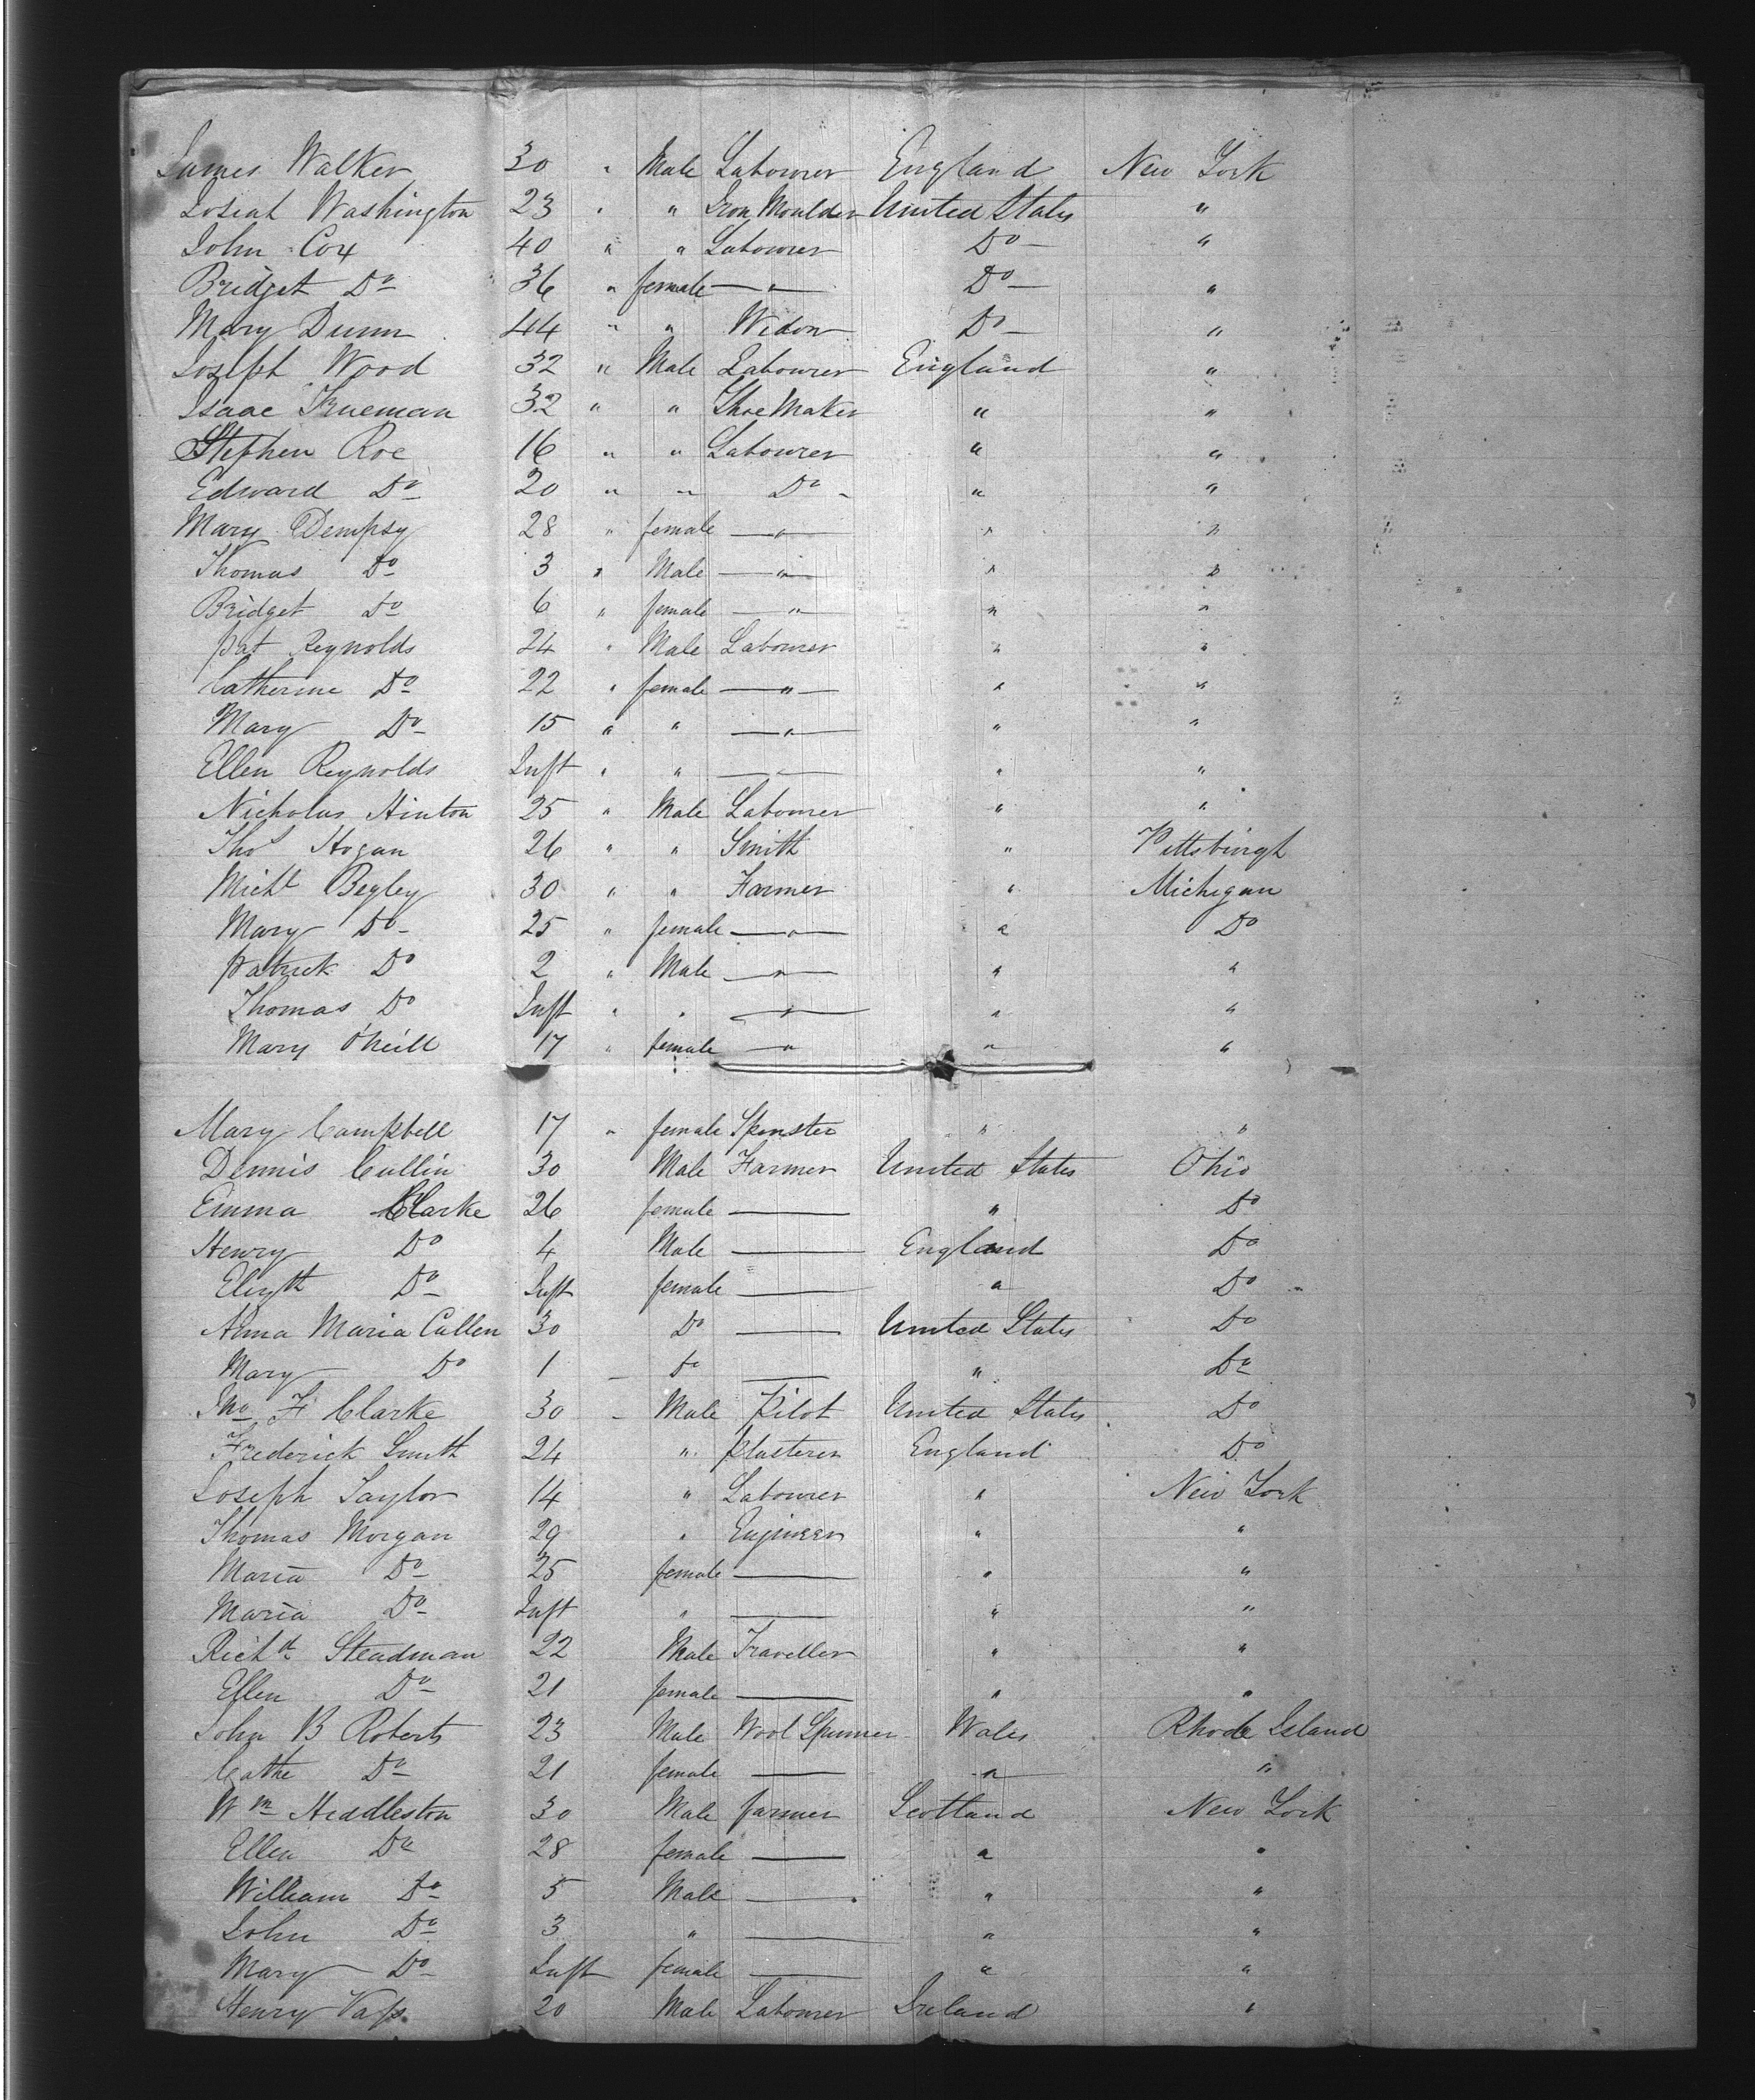 James Walker 30 " Male Labourer England New York
Josiah Washington 23 " " Iron Moulder United States "
John Cox 40 " " Labourer Do "
Bridget Do 36 " female — " — Do "
Mary Dunn 44 " " Widow Do "
Joseph Wood 32 " Male Labourer England "
Isaac Trueman 32 " " Shoe Maker " "
Stephen Roe 16 " " Labourer " "
Edward Do 20 " " Do " "
Mary Dempsy 28 " female — " — " "
Thomas Do 3 " Male — " — " "
Bridget Do 6 " female — " — " "
Pat Reynolds 24 " Male Labourer " "
Catherine Do 22 " female — " — " "
Mary Do 15 " " — " — " "
Ellen Reynolds Inft " " — " — " "
Nicholas Hinton 25 " Male Labourer " "
Thos Hogan 26 " " Smith " Pittsburgh
Michl Begley 30 " " Farmer " Michigan
Mary Do 25 " female — " — " Do
Patrick Do 2 " Male — " — " "
Thomas Do Inft " " — " — " "
Mary O'Neill 17 " female — " " "
Mary Campbell 17 " female Spinster " "
Dennis Cullin 30 Male Farmer United States Ohio
Emma Clarke 26 female — " Do
Henry Do 4 Male — England Do
Elizth Do Inft female — " Do
Anna Maria Cullen 30 Do — United States Do
Mary Do 1 Do — " Do
Jno F Clarke 30 Male Pilot United States Do
Frederick Smith 24 " Plasterer England Do
Joseph Taylor 14 " Labourer " New York
Thomas Morgan 29 " Engineer " "
Maria Do 25 female — " "
Maria Do Inft " — " "
Richd Steadman 22 Male Traveller " "
Ellen Do 21 female — " "
John B Roberts 23 Male Wool Spinner Wales Rhode Island
Cathe Do 21 female — " "
Wm Heddleston 30 Male farmer Scotland New York
Ellen Do 28 female — " "
William Do 5 Male — " "
John Do 3 " — " "
Mary Do Inft female — " "
Henry Vass 20 Male Labourer Ireland "